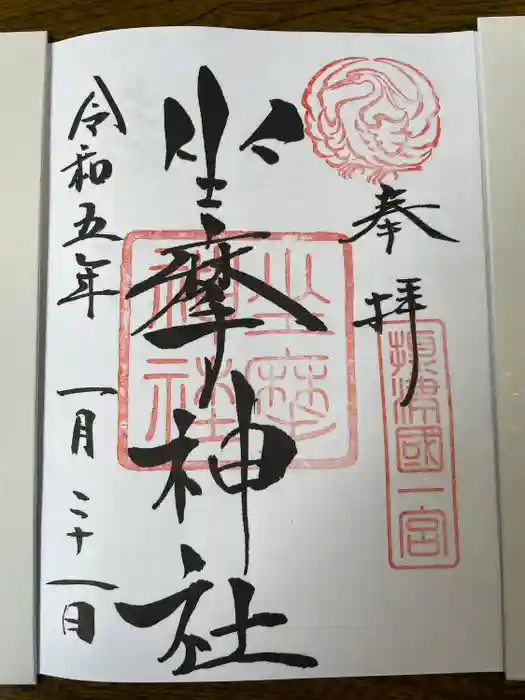 奉拝
攝津國一宮
坐摩神社
坐摩神社
令和五年一月二十一日